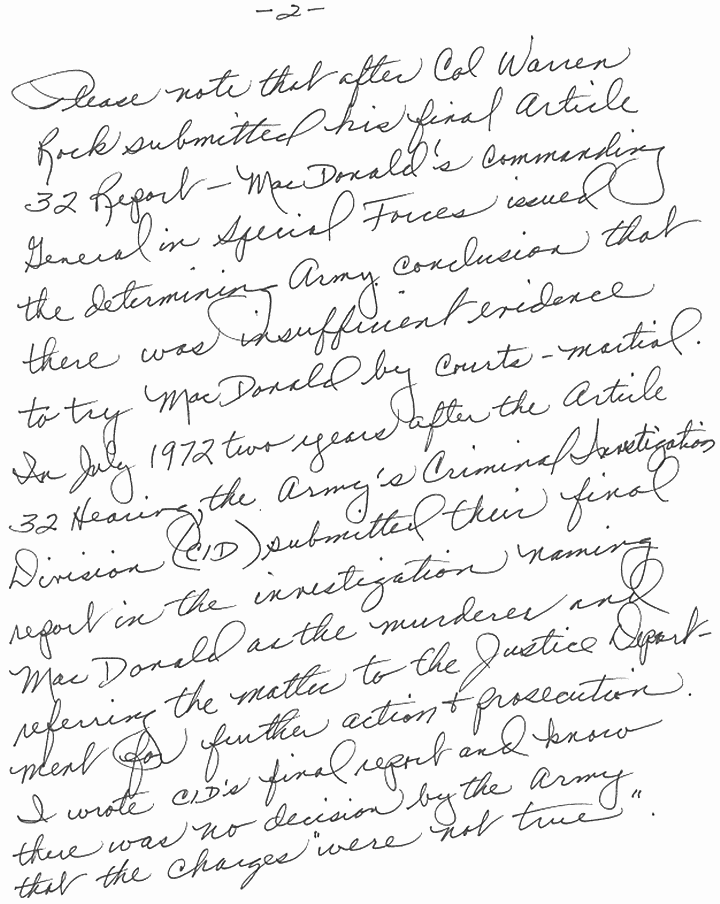 -2-
Please note that after Col Warren
Rock submitted his final Article
32 Report - MacDonald's Commanding
General in Special Forces issued
the determining Army conclusion that
there was insufficient evidence
to try MacDonald by courts-martial.
In July 1972 two years after the Article
32 Hearing, the Army's Criminal Investigation
Division (CID) submitted their final
report in the investigation naming
MacDonald as the murderer and
referring the matter to the Justice Depart-
ment for further action & prosecution.
I wrote CID's final report and know
there was no decision by the Army
that the charges "were not true".